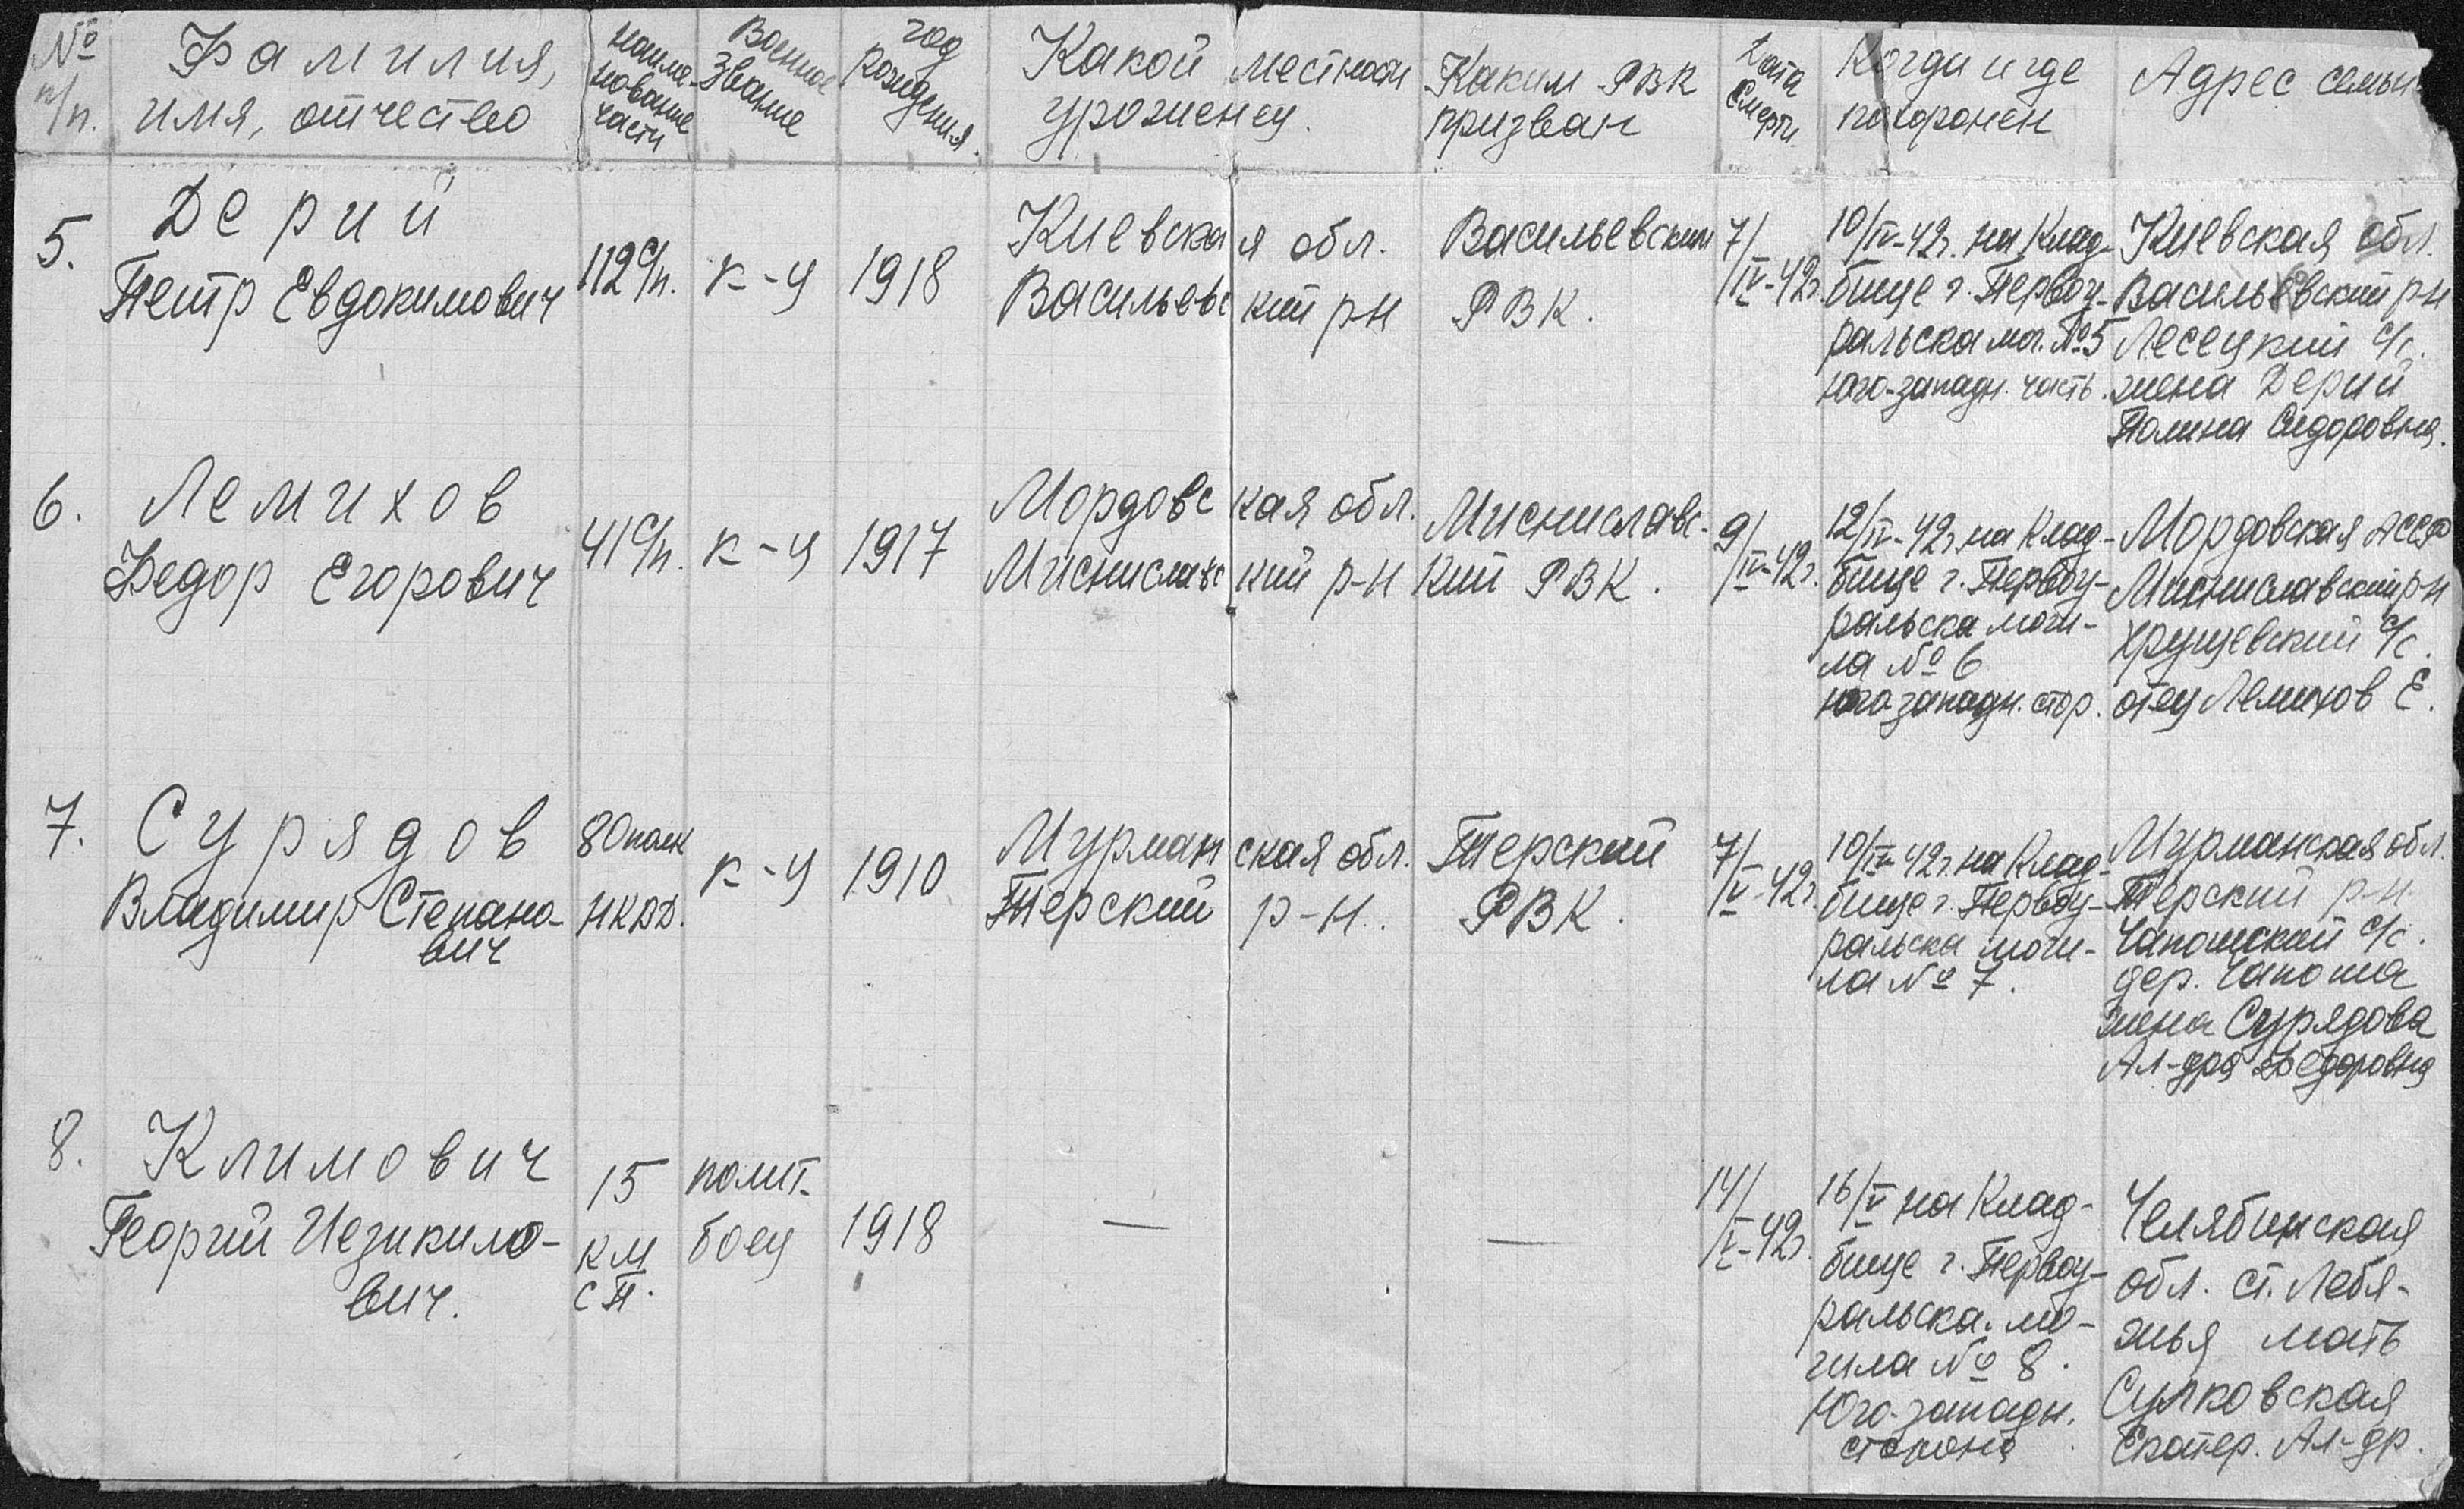 № п/п.
Фамилия,
имя, отчество
наиме-
нование
части
Военное
звание
год
рождения.
Какой местности
уроженец.
Каким РВК
призван
Дата
смерти.
Когда и где
похоронен
Адрес семьи
5.
Дерий
Петр Евдокимович
112 с/п.
к-ц
1918
Киевская обл.
Васильевский р-н
Васильевским
РВК.
7/IV-42г.
10/IV-42г. на клад-
бище г. Первоу-
ральска мог. №5
юго-западн. часть.
Киевская обл.
Васильевский р-н
Лесецкий с/с.
жена Дерий
Полина Сидоровна.
6.
Лемихов
Федор Егорович
41 с/п.
к-ц
1917
Мордовская обл.
Мисниславский р-н
Мисниславс-
кий РВК.
9/IV-42г.
12/IV-42г. на клад-
бище г. Первоу-
ральска моги-
ла № 6
юго-западн. стор.
Мордовская АССР
Мисниславский р-н
Хрущевский с/с.
отец Лемихов Е.
7.
Сурядов
Владимир Степано-
вич
80 полк
НКВД.
к-ц
1910
Мурманская обл.
Терский р-н.
Терский
РВК.
7/V-42г.
10/IV-42г. на клад-
бище г. Первоу-
ральска моги-
ла № 7.
Мурманская обл.
Терский р-н
Чапомский с/с.
дер. Чапома
жена Сурядова
Ал-дра Федоровна
8.
Климович
Георгий Иезикило-
вич.
15
КМ
СП.
полит-
боец
1918
—
—
14/V-42г.
16/V на клад-
бище г. Первоу-
ральска. мо-
гила № 8.
Юго-западн.
сторона
Челябинская
обл. ст. Лебя-
жья мать
Сулковская
Екатер. Ал-др.